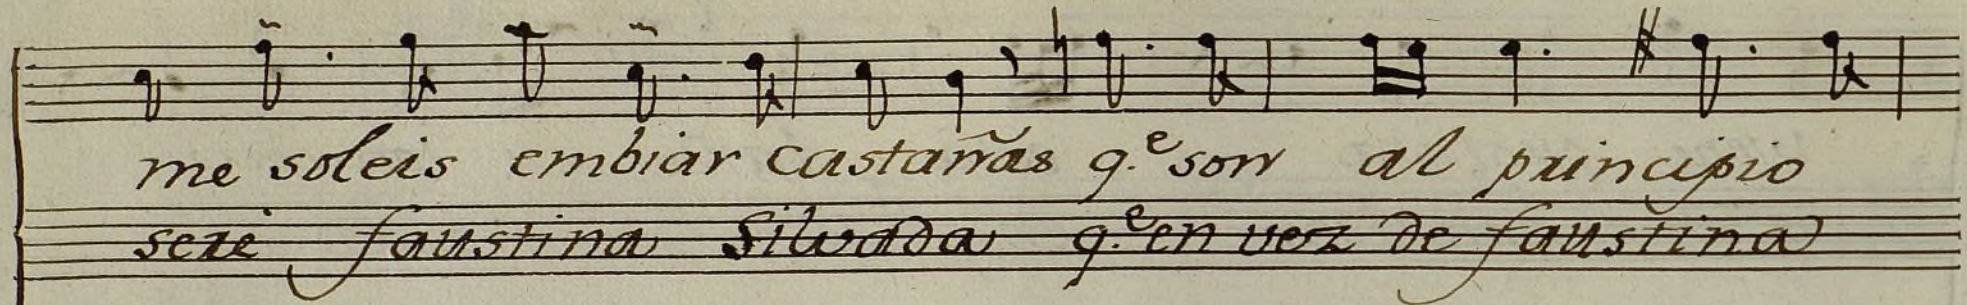 me soleis embiar castañas q.e son al principio
sere faustina Silvada q.e en vez de faustina